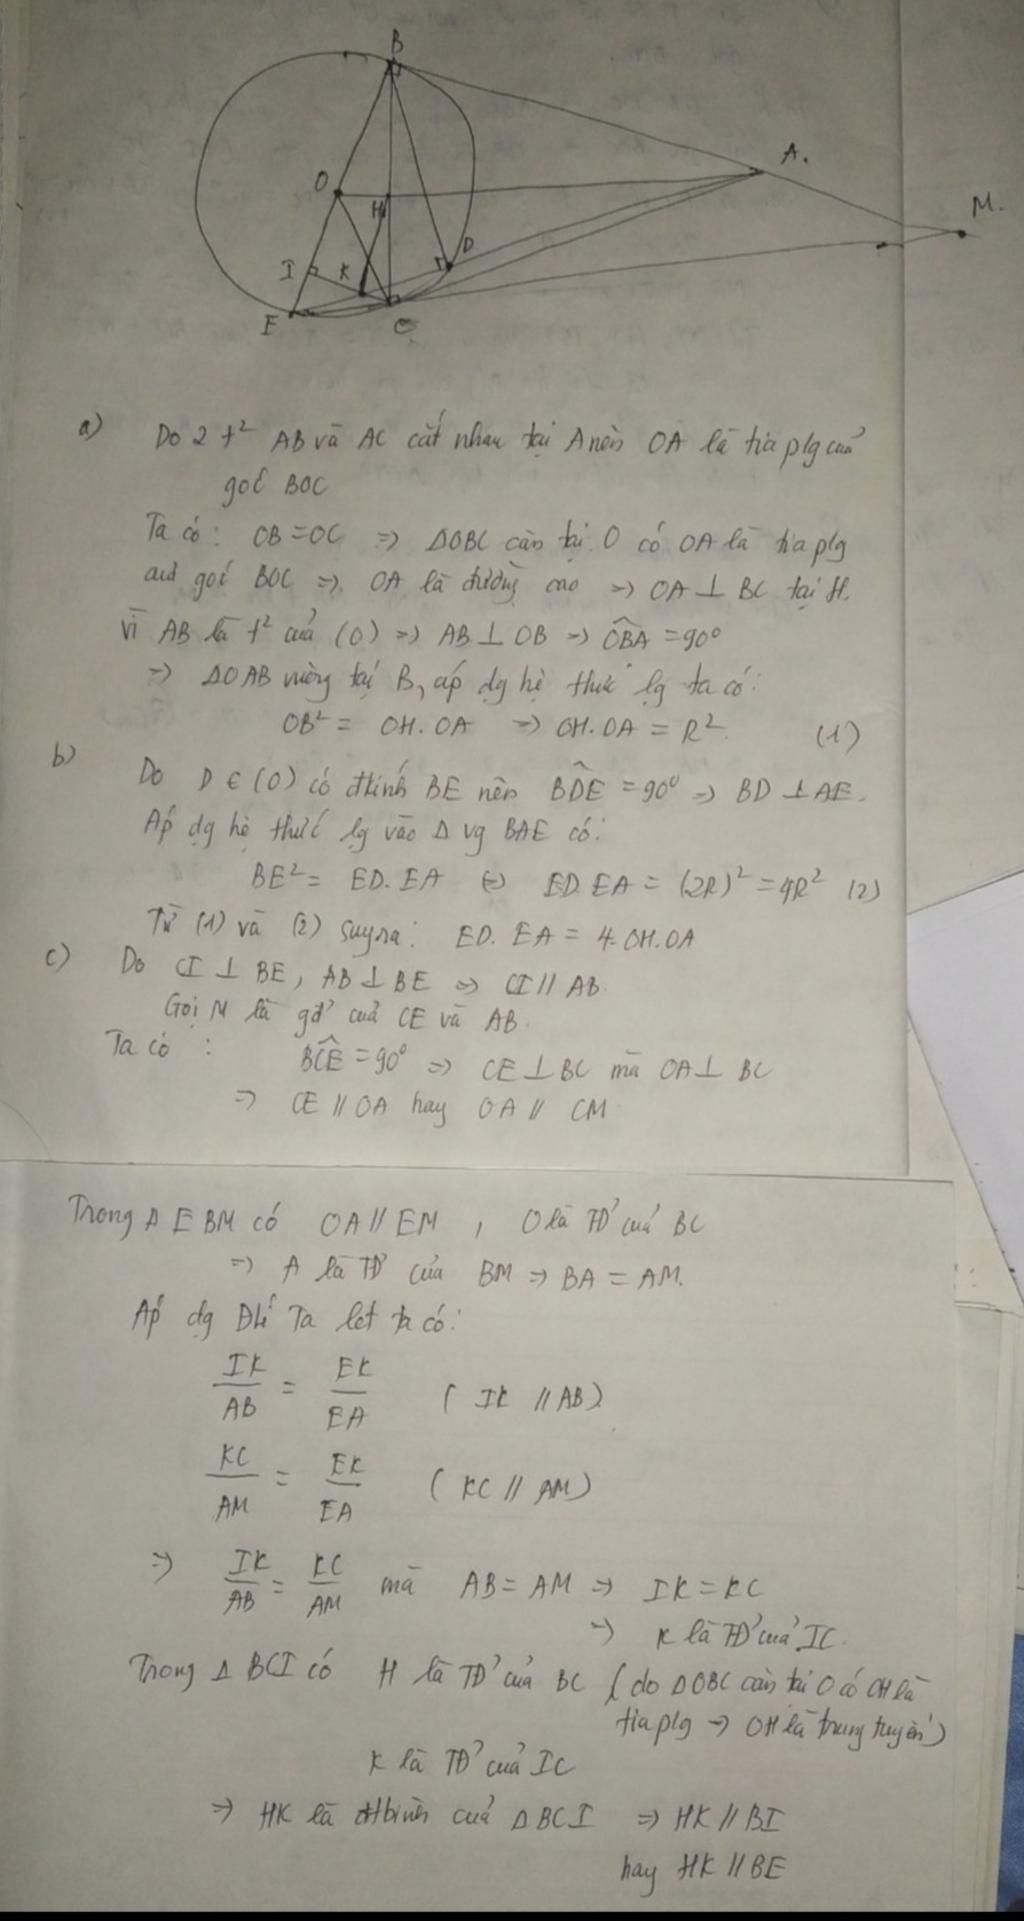 B
A.
M.
O
H
D
I
K
E
C
a) Do 2 t² AB và AC cắt nhau tại A nên OA là tia plg của
góc BOC
Ta có: OB = OC => ΔOBC cân tại O có OA là tia plg
của góc BOC => OA là đường cao => OA ⊥ BC tại H.
Vì AB là t² của (O) => AB ⊥ OB => OBA = 90°
=> ΔOAB vuông tại B, áp dg hệ thức lg ta có:
OB² = OH.OA => OH.OA = R² (1)
b) Do D ∈ (O) có đkính BE nên BDE = 90° => BD ⊥ AE.
Áp dg hệ thức lg vào Δ vg BAE có:
BE² = ED.EA (=) ED.EA = (2R)² = 4R² (2)
Từ (1) và (2) suy ra: ED.EA = 4.OH.OA
c) Do CI ⊥ BE, AB ⊥ BE => CI // AB.
Gọi M là gđ' của CE và AB.
Ta có : BCE = 90° => CE ⊥ BC mà OA ⊥ BC
=> CE // OA hay OA // CM
Trong Δ EBM có OA // EM, O là TĐ' của BC
=> A là TĐ' của BM => BA = AM.
Áp dg Đlí Ta let ta có:
IK/AB = EK/EA ( IK // AB)
KC/AM = EK/EA ( KC // AM)
=> IK/AB = KC/AM mà AB = AM => IK = KC
=> K là TĐ' của IC.
Trong Δ BCI có H là TĐ' của BC ( do ΔOBC cân tại O có OH là
tia plg => OH là trung tuyến)
K là TĐ' của IC
=> HK là đtbình của Δ BCI => HK // BI
hay HK // BE